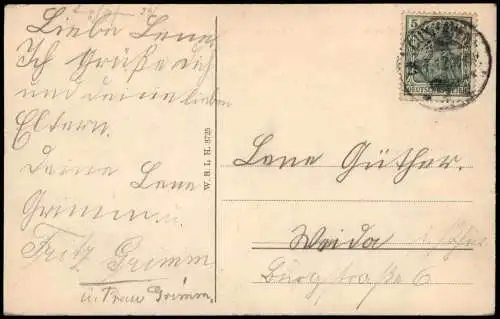 Liebe Lene.
Ich Grüße dich
und deine lieben
Eltern.
Deine Lene
Grimm u.
Fritz Grimm
u. Frau Grimm.
W. B. L. H. 8725
5
DEUTSCHES REICH
Lene Güther.
Weida
Burgstraße 6